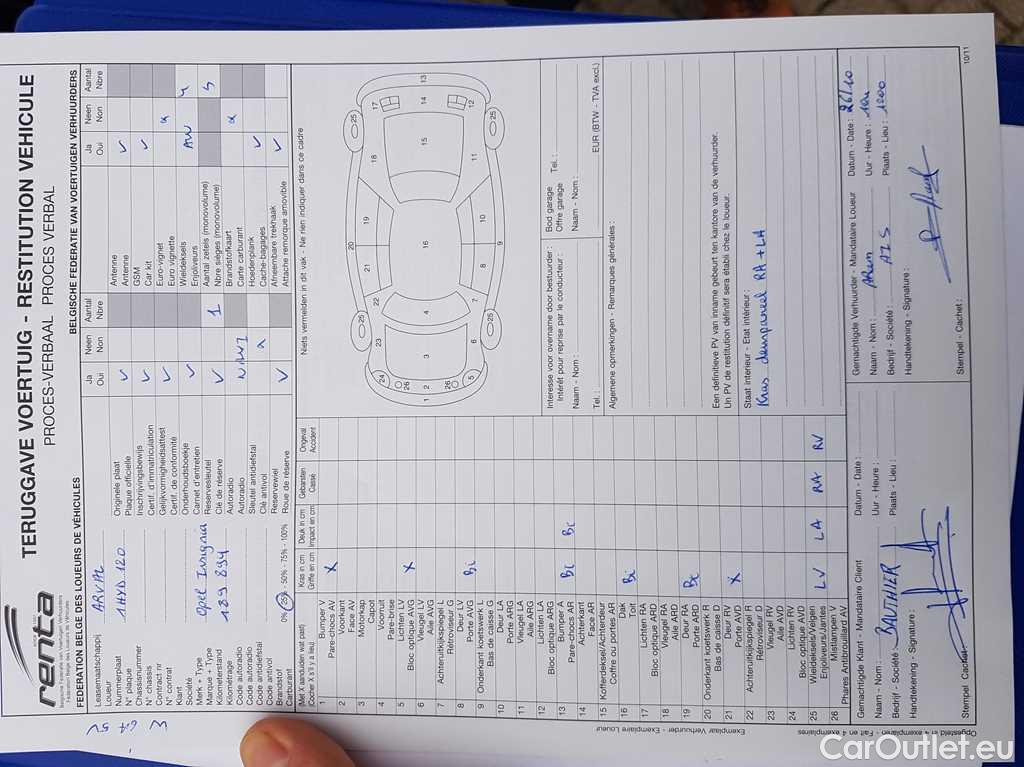 renta
Belgische Federatie van Voertuigen Verhuurders
Fédération Belge des Loueurs de Véhicules
TERUGGAVE VOERTUIG - RESTITUTION VEHICULE
PROCES-VERBAAL PROCES VERBAL
FEDERATION BELGE DES LOUEURS DE VÉHICULES
BELGISCHE FEDERATIE VAN VOERTUIGEN VERHUURDERS
Leasemaatschappij
Loueur
ARVAL
Nummerplaat
N° plaque
1HYD 120
Chassisnummer
N° chassis
Contract nr
N° contrat
Klant
Société
Merk + Type
Marque + Type
Opel Insignia
Kilometerstand
Kilométrage
189 894
Code autoradio
Code autoradio
Code antidiefstal
Code antivol
Brandstof
Carburant
0% - 25% - 50% - 75% - 100%
Ja
Oui
Neen
Non
Aantal
Nbre
Originele plaat
Plaque officielle
V
Inschrijvingsbewijs
Certif. d'immatriculation
V
Gelijkvormigheidsattest
Certif. de conformité
V
Onderhoudsboekje
Carnet d'entretien
V
Reservesleutel
Clé de réserve
V
1
Autoradio
Autoradio
NAVI
Sleutel antidiefstal
Clé antivol
x
Reservewiel
Roue de réserve
V
Ja
Oui
Neen
Non
Aantal
Nbre
Antenne
Antenne
V
GSM
Car kit
V
Euro-vignet
Euro vignette
x
Wieldeksels
Enjoliveurs
AW
4
Aantal zetels (monovolume)
Nbre sièges (monovolume)
5
Brandstofkaart
Carte carburant
x
Hoedenplank
Cache-bagages
V
Afneembare trekhaak
Attache remorque amovible
V
(Met X aanduiden wat past)
(Cocher X s'il y a lieu)
Kras in cm
Griffe en cm
Deuk in cm
Impact en cm
Gebarsten
Cassé
Ongeval
Accident
1 Bumper V
Pare-chocs AV
X
2 Voorkant
Face AV
3 Motorkap
Capot
4 Voorruit
Pare-brise
5 Lichten LV
Bloc optique AVG
6 Vleugel LV
Aile AVG
X
7 Achteruitkijkspiegel L
Rétroviseur G
8 Deur LV
Porte AVG
Bi
9 Onderkant koetswerk L
Bas de caisse G
10 Deur LA
Porte ARG
11 Vleugel LA
Aile ARG
12 Lichten LA
Bloc optique ARG
13 Bumper A
Pare-chocs AR
Bi
Bi
14 Achterkant
Face AR
15 Kofferdeksel/Achterdeur
Coffre ou portes AR
16 Dak
Toit
Bi
17 Lichten RA
Bloc optique ARD
18 Vleugel RA
Aile ARD
19 Deur RA
Porte ARD
Bi
20 Onderkant koetswerk R
Bas de caisse D
21 Deur RV
Porte AVD
X
22 Achteruitkijkspiegel R
Rétroviseur D
23 Vleugel RV
Aile AVD
24 Lichten RV
Bloc optique AVD
25 Wieldeksels/Velgen
Enjoliveurs/Jantes
LV
LA
RA
RV
26 Mistlampen V
Phares Antibrouillard AV
Niets vermelden in dit vak - Ne rien indiquer dans ce cadre
1 2 3 4 5 6 7 8 9 10 11 12 13 14 15 16 17 18 19 20 21 22 23 24 25 25 25 25 26 26
Interesse voor overname door bestuurder :
Intérêt pour reprise par le conducteur :
Naam - Nom :
Tel. :
Bod garage
Offre garage
Naam - Nom :
Tel. :
EUR (BTW - TVA excl.)
Algemene opmerkingen - Remarques générales :
Een definitieve PV van inname gebeurt ten kantore van de verhuurder.
Un PV de restitution définitif sera établi chez le loueur.
Staat interieur - Etat intérieur :
Kras deurpaneel RA + LA
Gemachtigde Klant - Mandataire Client
Naam - Nom :
BAUTHIER
Bedrijf - Société :
Handtekening - Signature :
Stempel - Cachet :
Datum - Date :
Uur - Heure :
Plaats - Lieu :
Gemachtigde Verhuurder - Mandataire Loueur
Naam - Nom :
Bedrijf - Société :
Handtekening - Signature :
Stempel - Cachet :
Datum - Date :
26/10
Uur - Heure :
Plaats - Lieu :
Exemplaar Verhuurder - Exemplaire Loueur
Opgesteld in 4 exemplaren - Fait en 4 exemplaires
10/11
CarOutlet.eu